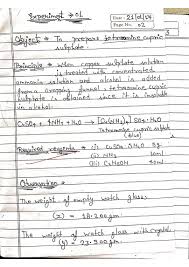 Experiment → 01
Date : 31/01/24
Page No. 02
Object → To prepare tetrammine cupric
sulphate.
Principle → When copper sulphate solution
is treated with concentrated
ammonia solution and alcohol is added
from a dropping funnel, tetrammine cupric
sulphate is obtained since it is insoluble
in alcohol.
CuSO4 + 4NH3 + H2O → [Cu(NH3)4] SO4·H2O
Tetrammine cupric sulphate
(blue)
Required reagents → (i) CuSO4·5H2O 5g.
(ii) NH3 10ml
(iii)
Observation →
The weight of empty watch glass
(x) = 18.200 gm
The weight of watch glass with crystal
(y) = 23.500 gm